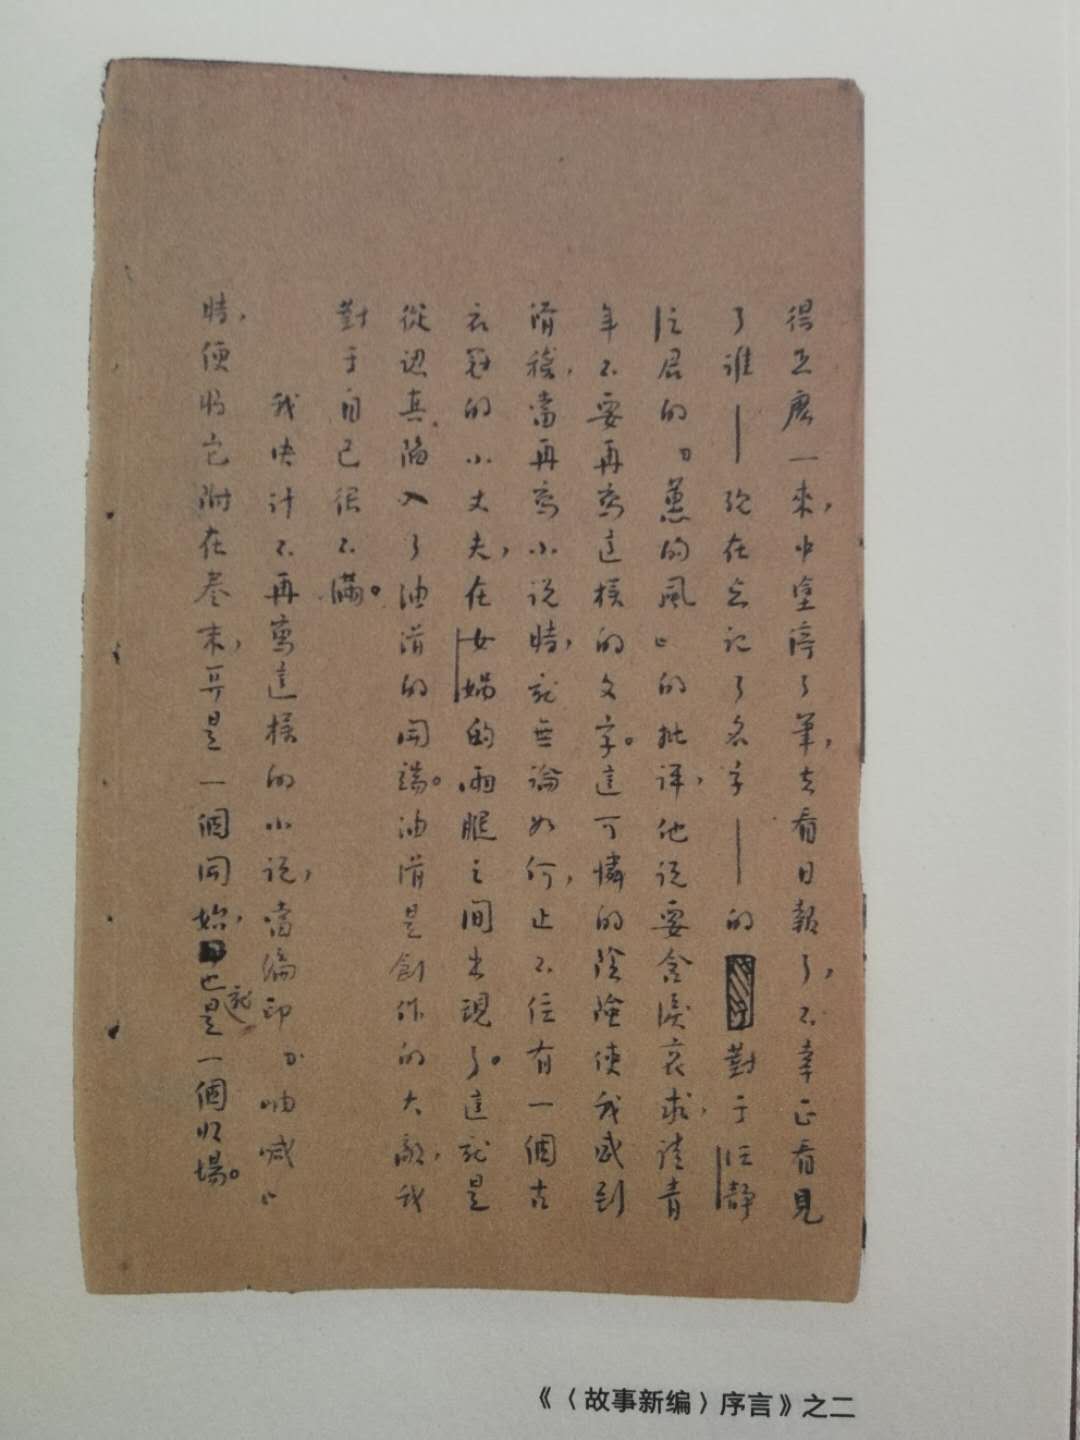 得怎麼一來，中塗停了筆，去看日報了，不幸正看見
了誰——現在忘記了名字——的對于汪靜
之君的『蕙的風』的批評，他說要含淚哀求，請青
年不要再寫這樣的文字。這可憐的陰險使我感到
滑稽，當再寫小說時，就無論如何，止不住有一個古
衣冠的小丈夫，在女媧的兩腿之間出現了。這就是
從認真陷入了油滑的開端。油滑是創作的大敵，我
對于自己很不滿。
我决計不再寫這樣的小說，當編印『吶喊』
時，便將它附在卷末，算是一個開始，也就是一個收場。
《〈故事新编〉序言》之二